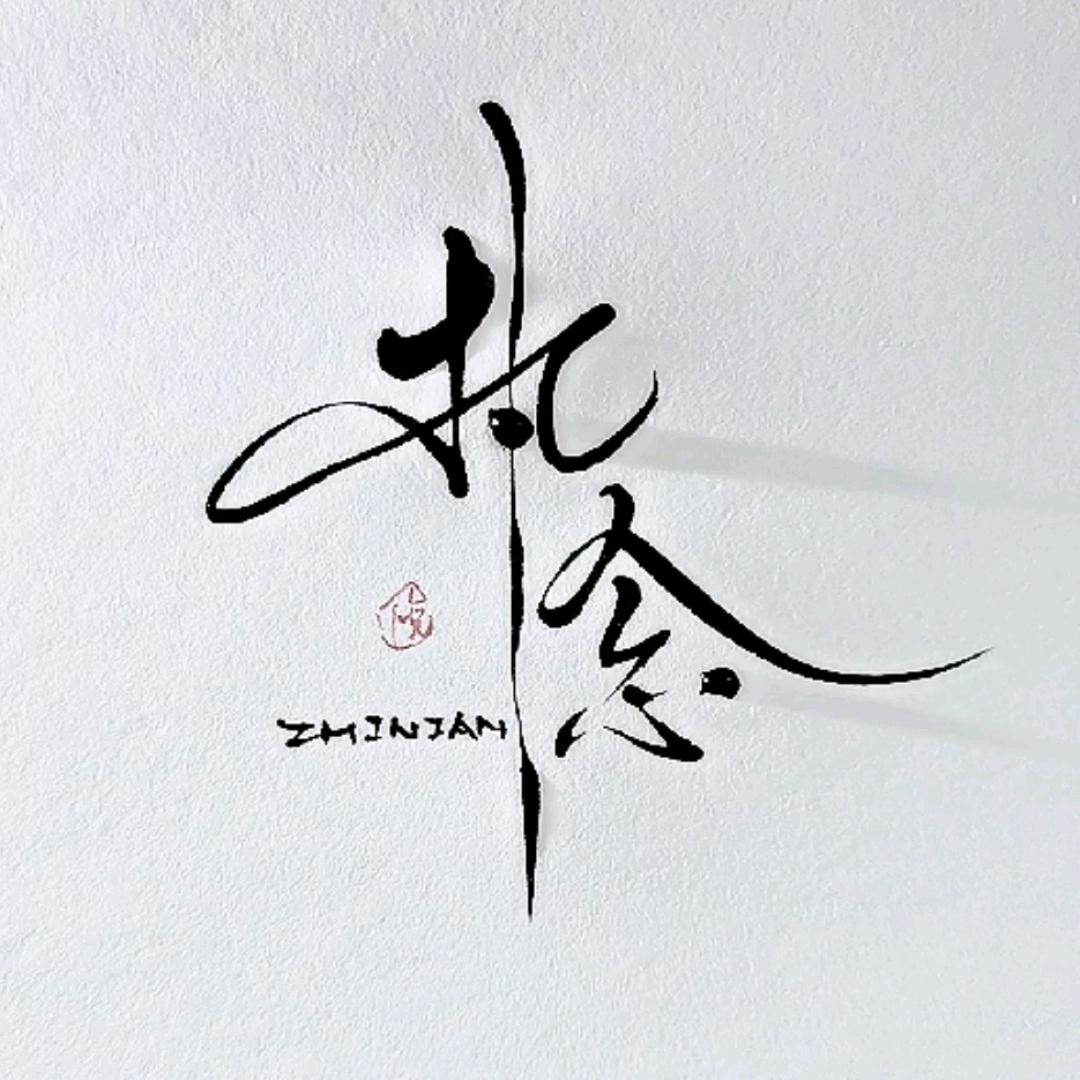 执念
ZHINIAN